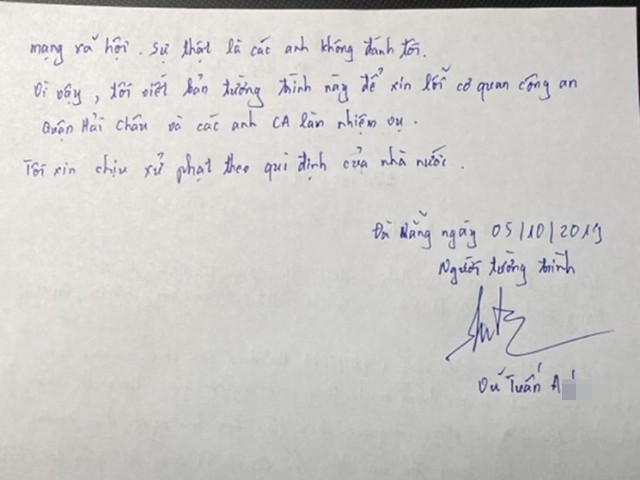 mạng xã hội. Sự thật là các anh không đánh tôi.
Vì vậy, tôi viết bản tường trình này để xin lỗi cơ quan công an
Quận Hải Châu và các anh CA làm nhiệm vụ.
Tôi xin chịu xử phạt theo qui định của nhà nước.
Đà Nẵng ngày 05/10/2019
Người tường trình
Vũ Tuấn A